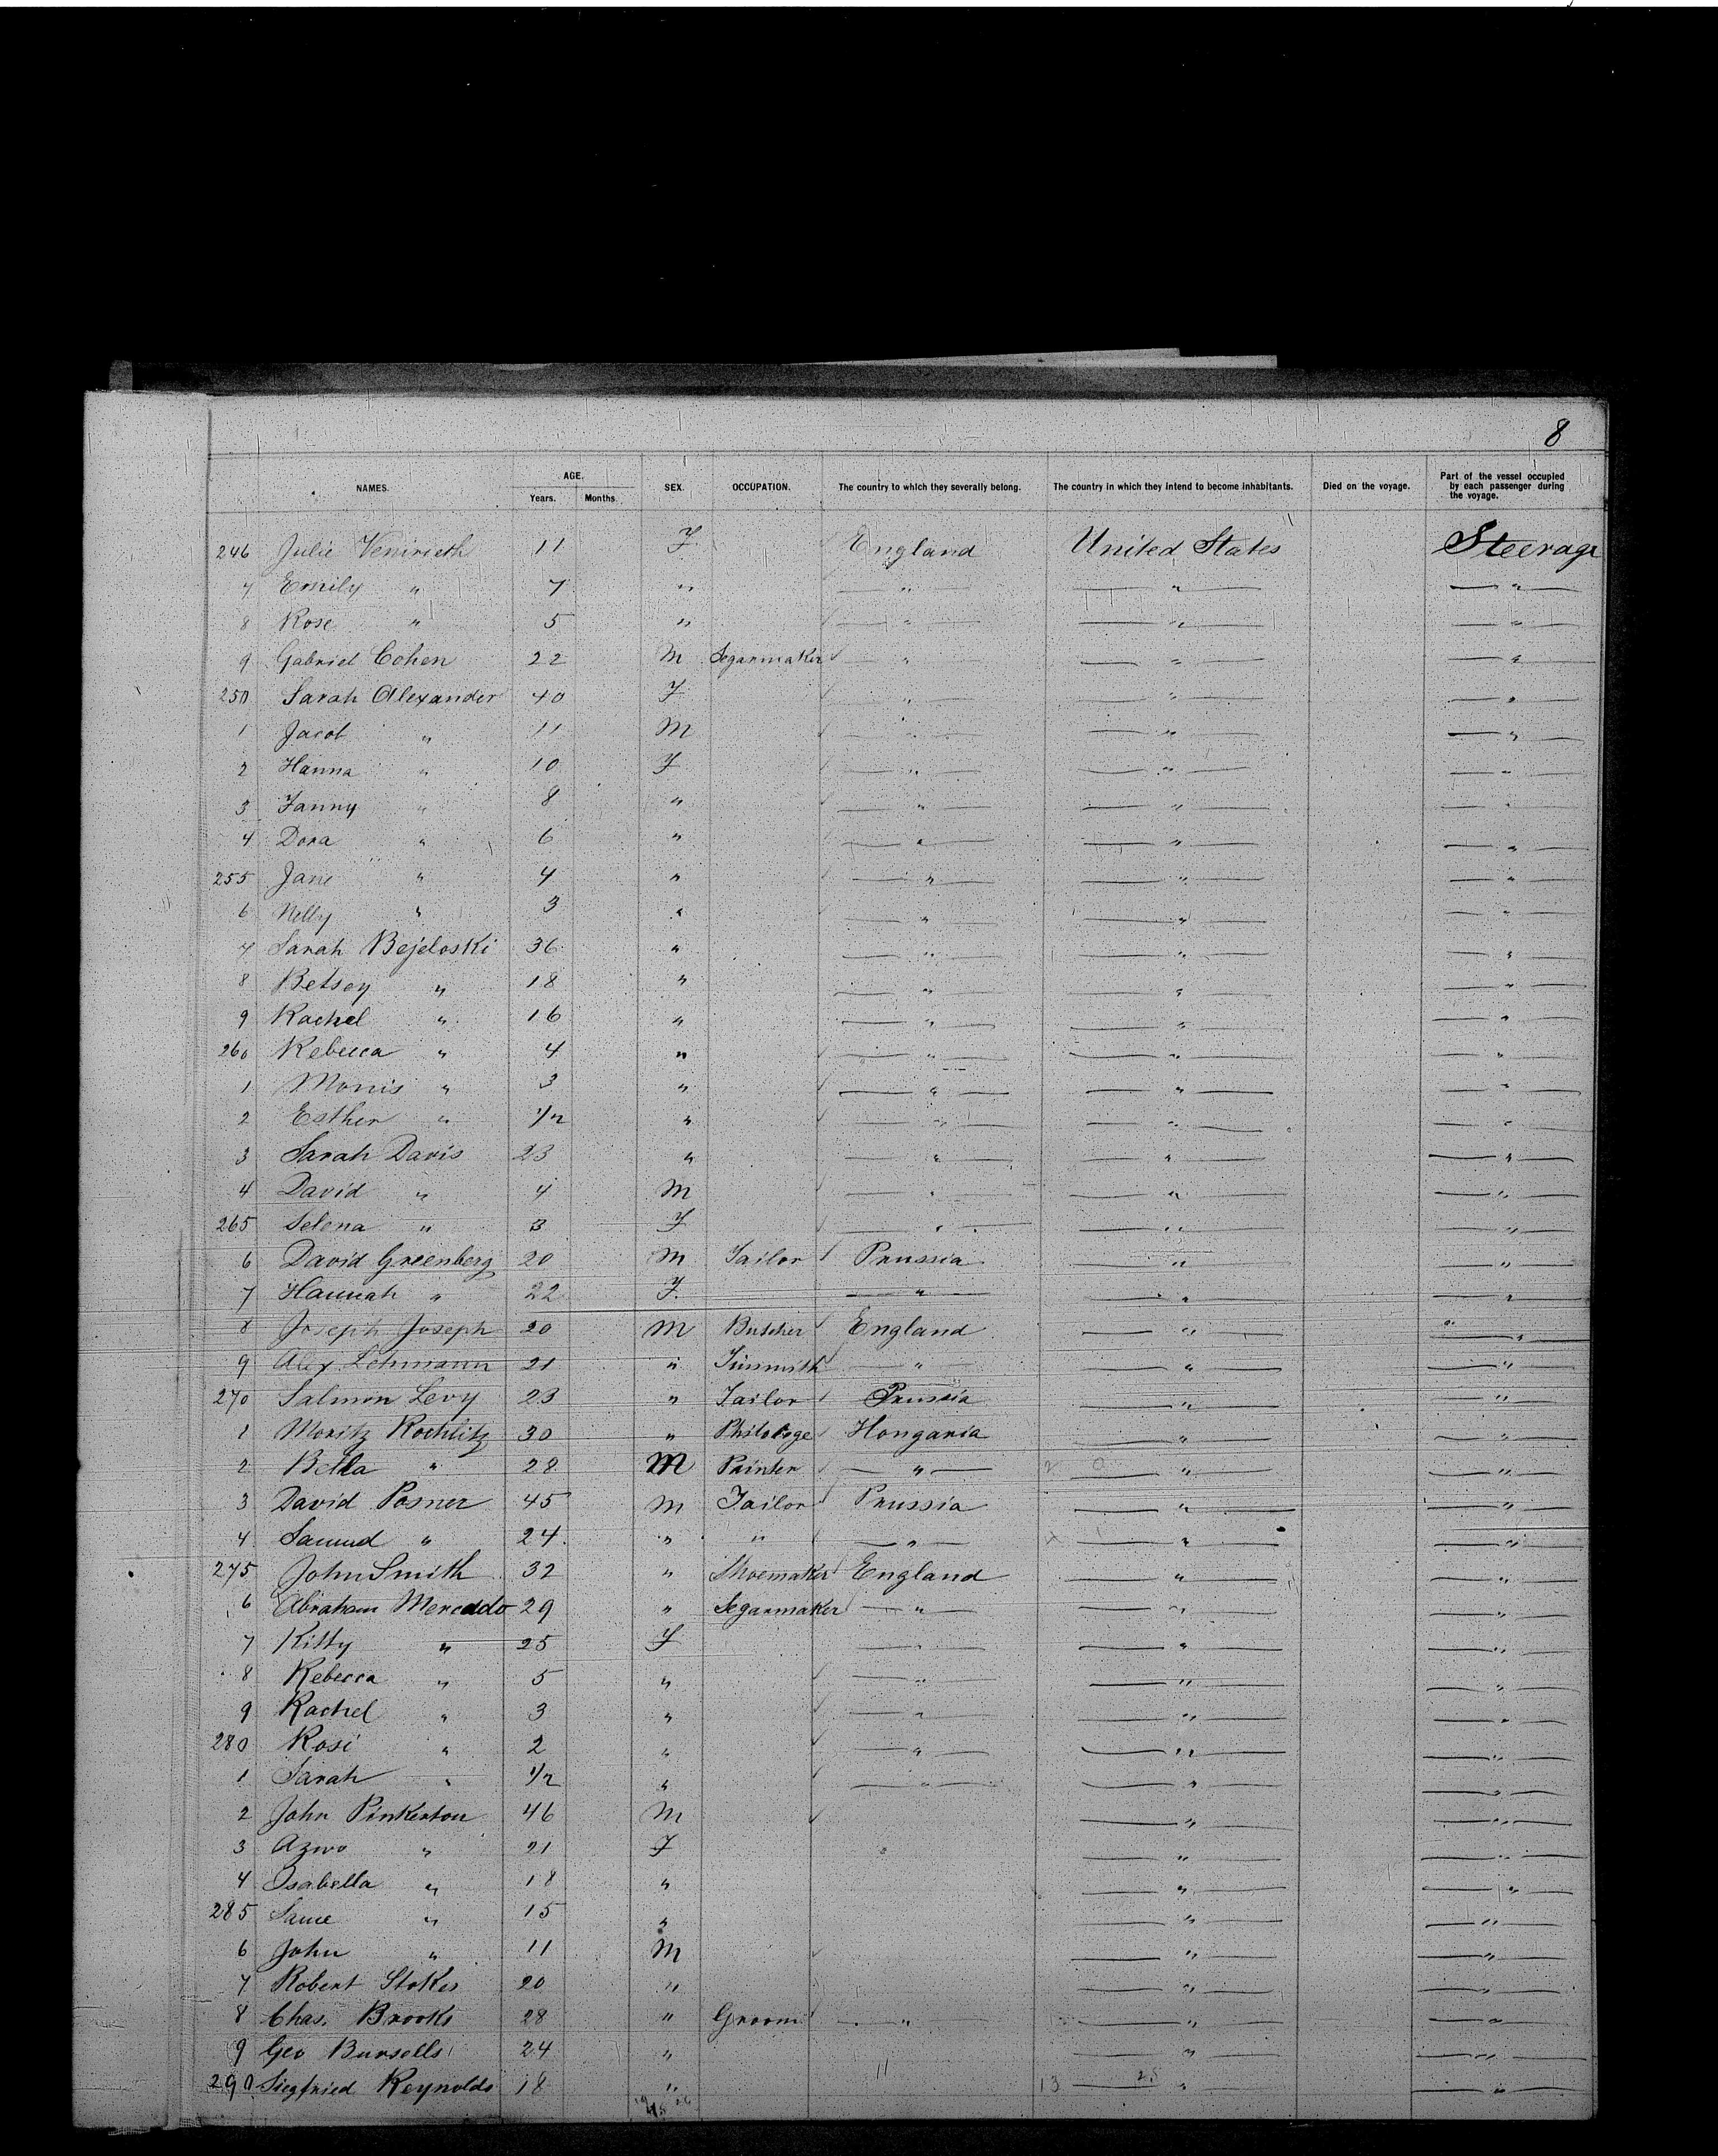 8
NAMES. AGE. Years. Months. SEX. OCCUPATION. The country to which they severally belong. The country in which they intend to become inhabitants. Died on the voyage. Part of the vessel occupied by each passenger during the voyage.
246 Julie Venirieth 11 F. England United States Steerage
7 Emily " 7 " " " "
8 Rose " 5 " " " "
9 Gabriel Cohen 22 M Segarmaker " " "
250 Sarah Alexander 40 F " " "
1 Jacob " 11 M " " "
2 Hanna " 10 F " " "
3 Fanny " 8 " " " "
4 Dora " 6 " " " "
255 Jane " 4 " " " "
6 Nelly " 3 " " " "
7 Sarah Bejeloski 36 " " " "
8 Betsey " 18 " " " "
9 Rachel " 16 " " " "
260 Rebecca " 4 " " " "
1 Morris " 3 " " " "
2 Esther " 1/2 " " " "
3 Sarah Davis 23 " " " "
4 David " 4 M " " "
265 Selena " 3 F " " "
6 David Greenberg 20 M Tailor Prussia " "
7 Hannah " 22 F. " " "
8 Joseph Joseph 20 M Butcher England " "
9 Alex Lehmann 21 " Tinsmith " " "
270 Salmon Levy 23 " Tailor Prussia " "
1 Moritz Rochlitz 30 " Philologe Hongaria " "
2 Bella " 28 M Printer " " "
3 David Posner 45 M Tailor Prussia " "
4 Samuel " 24 " " " " "
275 John Smith 32 " Shoemaker England " "
6 Abraham Mercado 29 " Segarmaker " " "
7 Kitty " 25 F " " "
8 Rebecca " 5 " " " "
9 Rachel " 3 " " " "
280 Rosi " 2 " " " "
1 Sarah " 1/2 " " " "
2 John Pinkerton 46 M " "
3 " 21 F " "
4 Isabella " 18 " " "
285 " 15 " " "
6 John " 11 M " "
7 Robert Stokes 20 " " "
8 Chas. Brooks 28 " Groom " " "
9 Geo Bursells 24 " " "
290 Siegfried Reynolds 18 " 11 13 " "